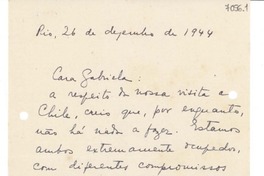 7096.1
Rio, 26 de dezembro de 1944
Cara Gabriela:
a respeito da nossa visita a
Chile, creio que, por enquanto,
não há nada a fazer. Estamos
ambos extremamente ocupados,
com diferentes compromissos